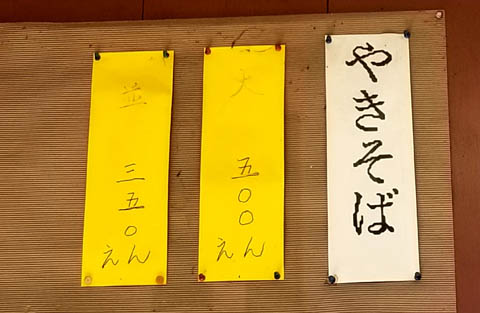 やきそば
大 五〇〇えん
並 三五〇えん